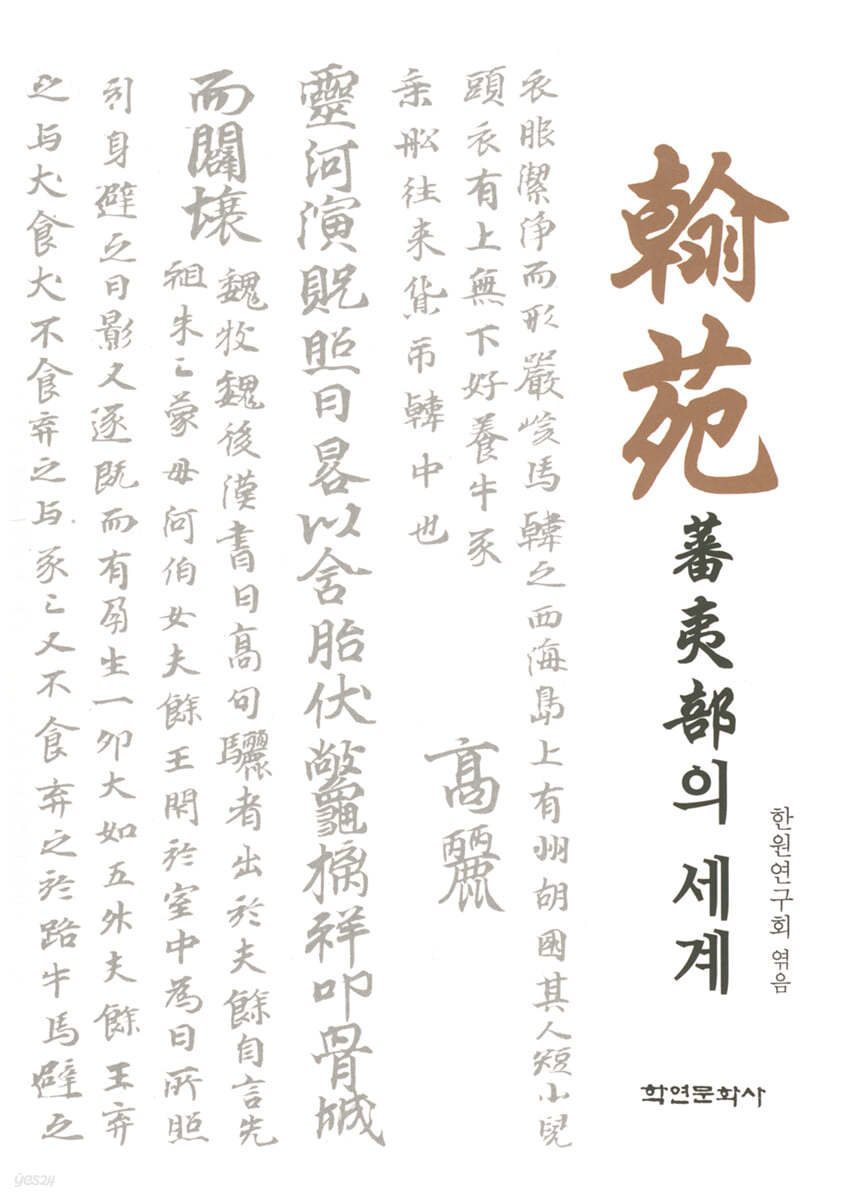 翰苑
蕃夷部의 세계
한원연구회 엮음
학연문화사
衣服潔浄而形嚴峻馬韓之西海島上有州胡國其人短小
頭衣有上無下好養牛豕
乗舩往来貨市韓中也
高麗
靈河演貺照日晷以含胎伏鼈摛祥叩骨城
而闢壤
魏牧魏後漢書曰高句驪者出於夫餘自言先
祖朱〻蒙母河伯女夫餘王閇於室中為日所照
引身避之日影又逐既而有孕生一卵大如五升夫餘王弃
之与犬食犬不食弃之与豕〻又不食弃之於路牛馬避之
yes24